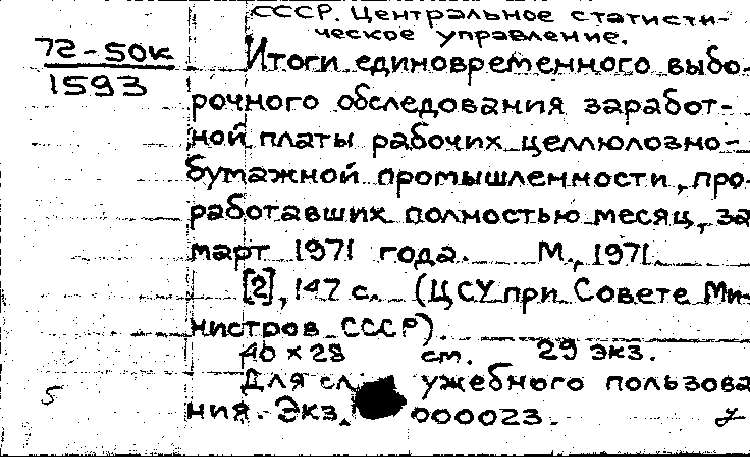 СССР. Центральное статисти-
ческое управление.
72-50к
1593
Итоги единовременного выбо-
рочного обследования заработ-
ной платы рабочих целлюлозно-
бумажной промышленности, про-
работавших полностью месяц, за
март 1971 года. М., 1971.
[2], 147 с. (ЦСУ при Совете Ми-
нистров СССР).
40 × 28 см. 29 экз.
Для служебного пользова
ния. Экз. 000023.
5